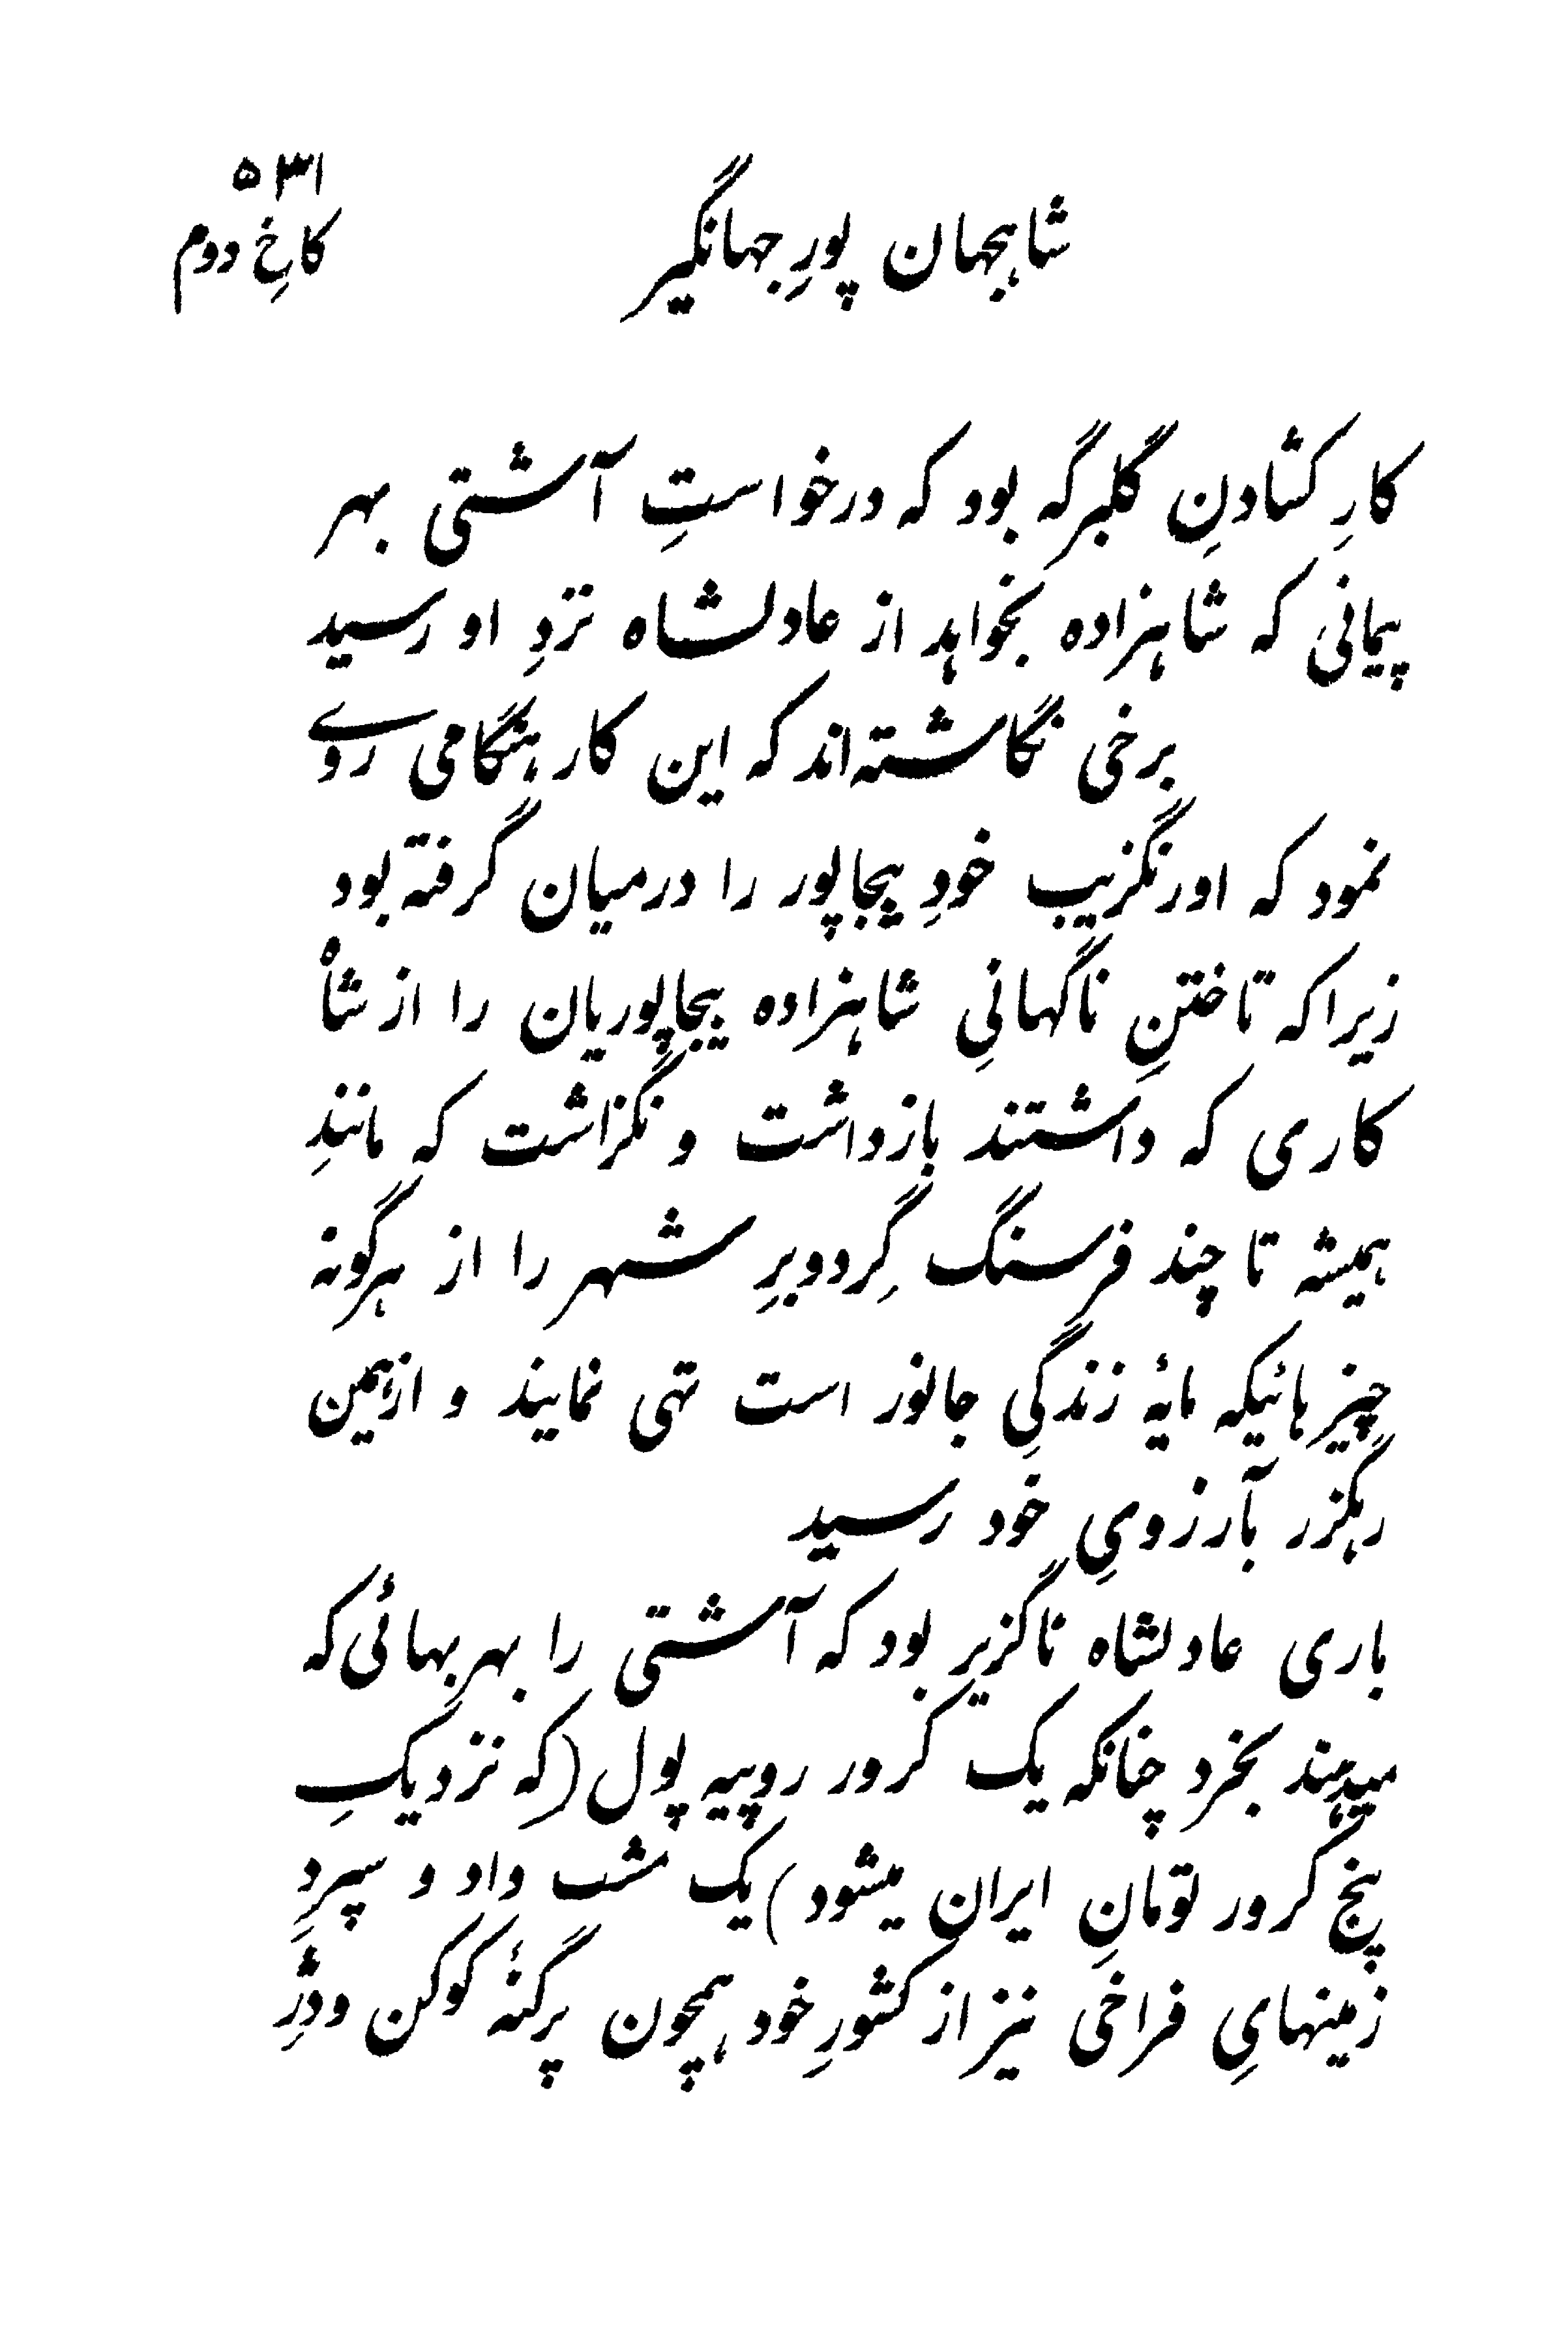 ۵۳۱
شاهجهان پورِ جهانگیر
کاخِ دوم
کارِ کشادنِ گلبرگه بود که درخواستِ آشتی بهر
پیمانی که شاهزاده بخواهد از عادلشاه نزدِ او رسید
برخی نگاشته‌اند که این کار هنگامی روے
نمود که اورنگزیب خودِ بیجاپور را درمیان گرفته بود
زیرا که تاختنِ ناگهانیِ شاهزاده بیجاپوریان را از شاه
کاری که داشتند بازداشت و نگزاشت که مانندِ
همیشه تا چند فرسنگ گِردوبرِ شهر را از هرگونه
چیزهائیکه مایۀ زندگیِ جانور است تهی نمایند و ازهمین
رهگزر بآرزویِ خود رسید
باری عادلشاه ناگزیر بود که آشتی را بهر بهائی که
میدهند بخرد چنانکه یک کرور روپیه پول (که نزدیکِ
پنج کرور تومانِ ایران میشود) یک مشت داد و سپردِ
زمینهایِ فراخی نیز از کشورِ خود همچون پرگنۀ کوکن و دژِ